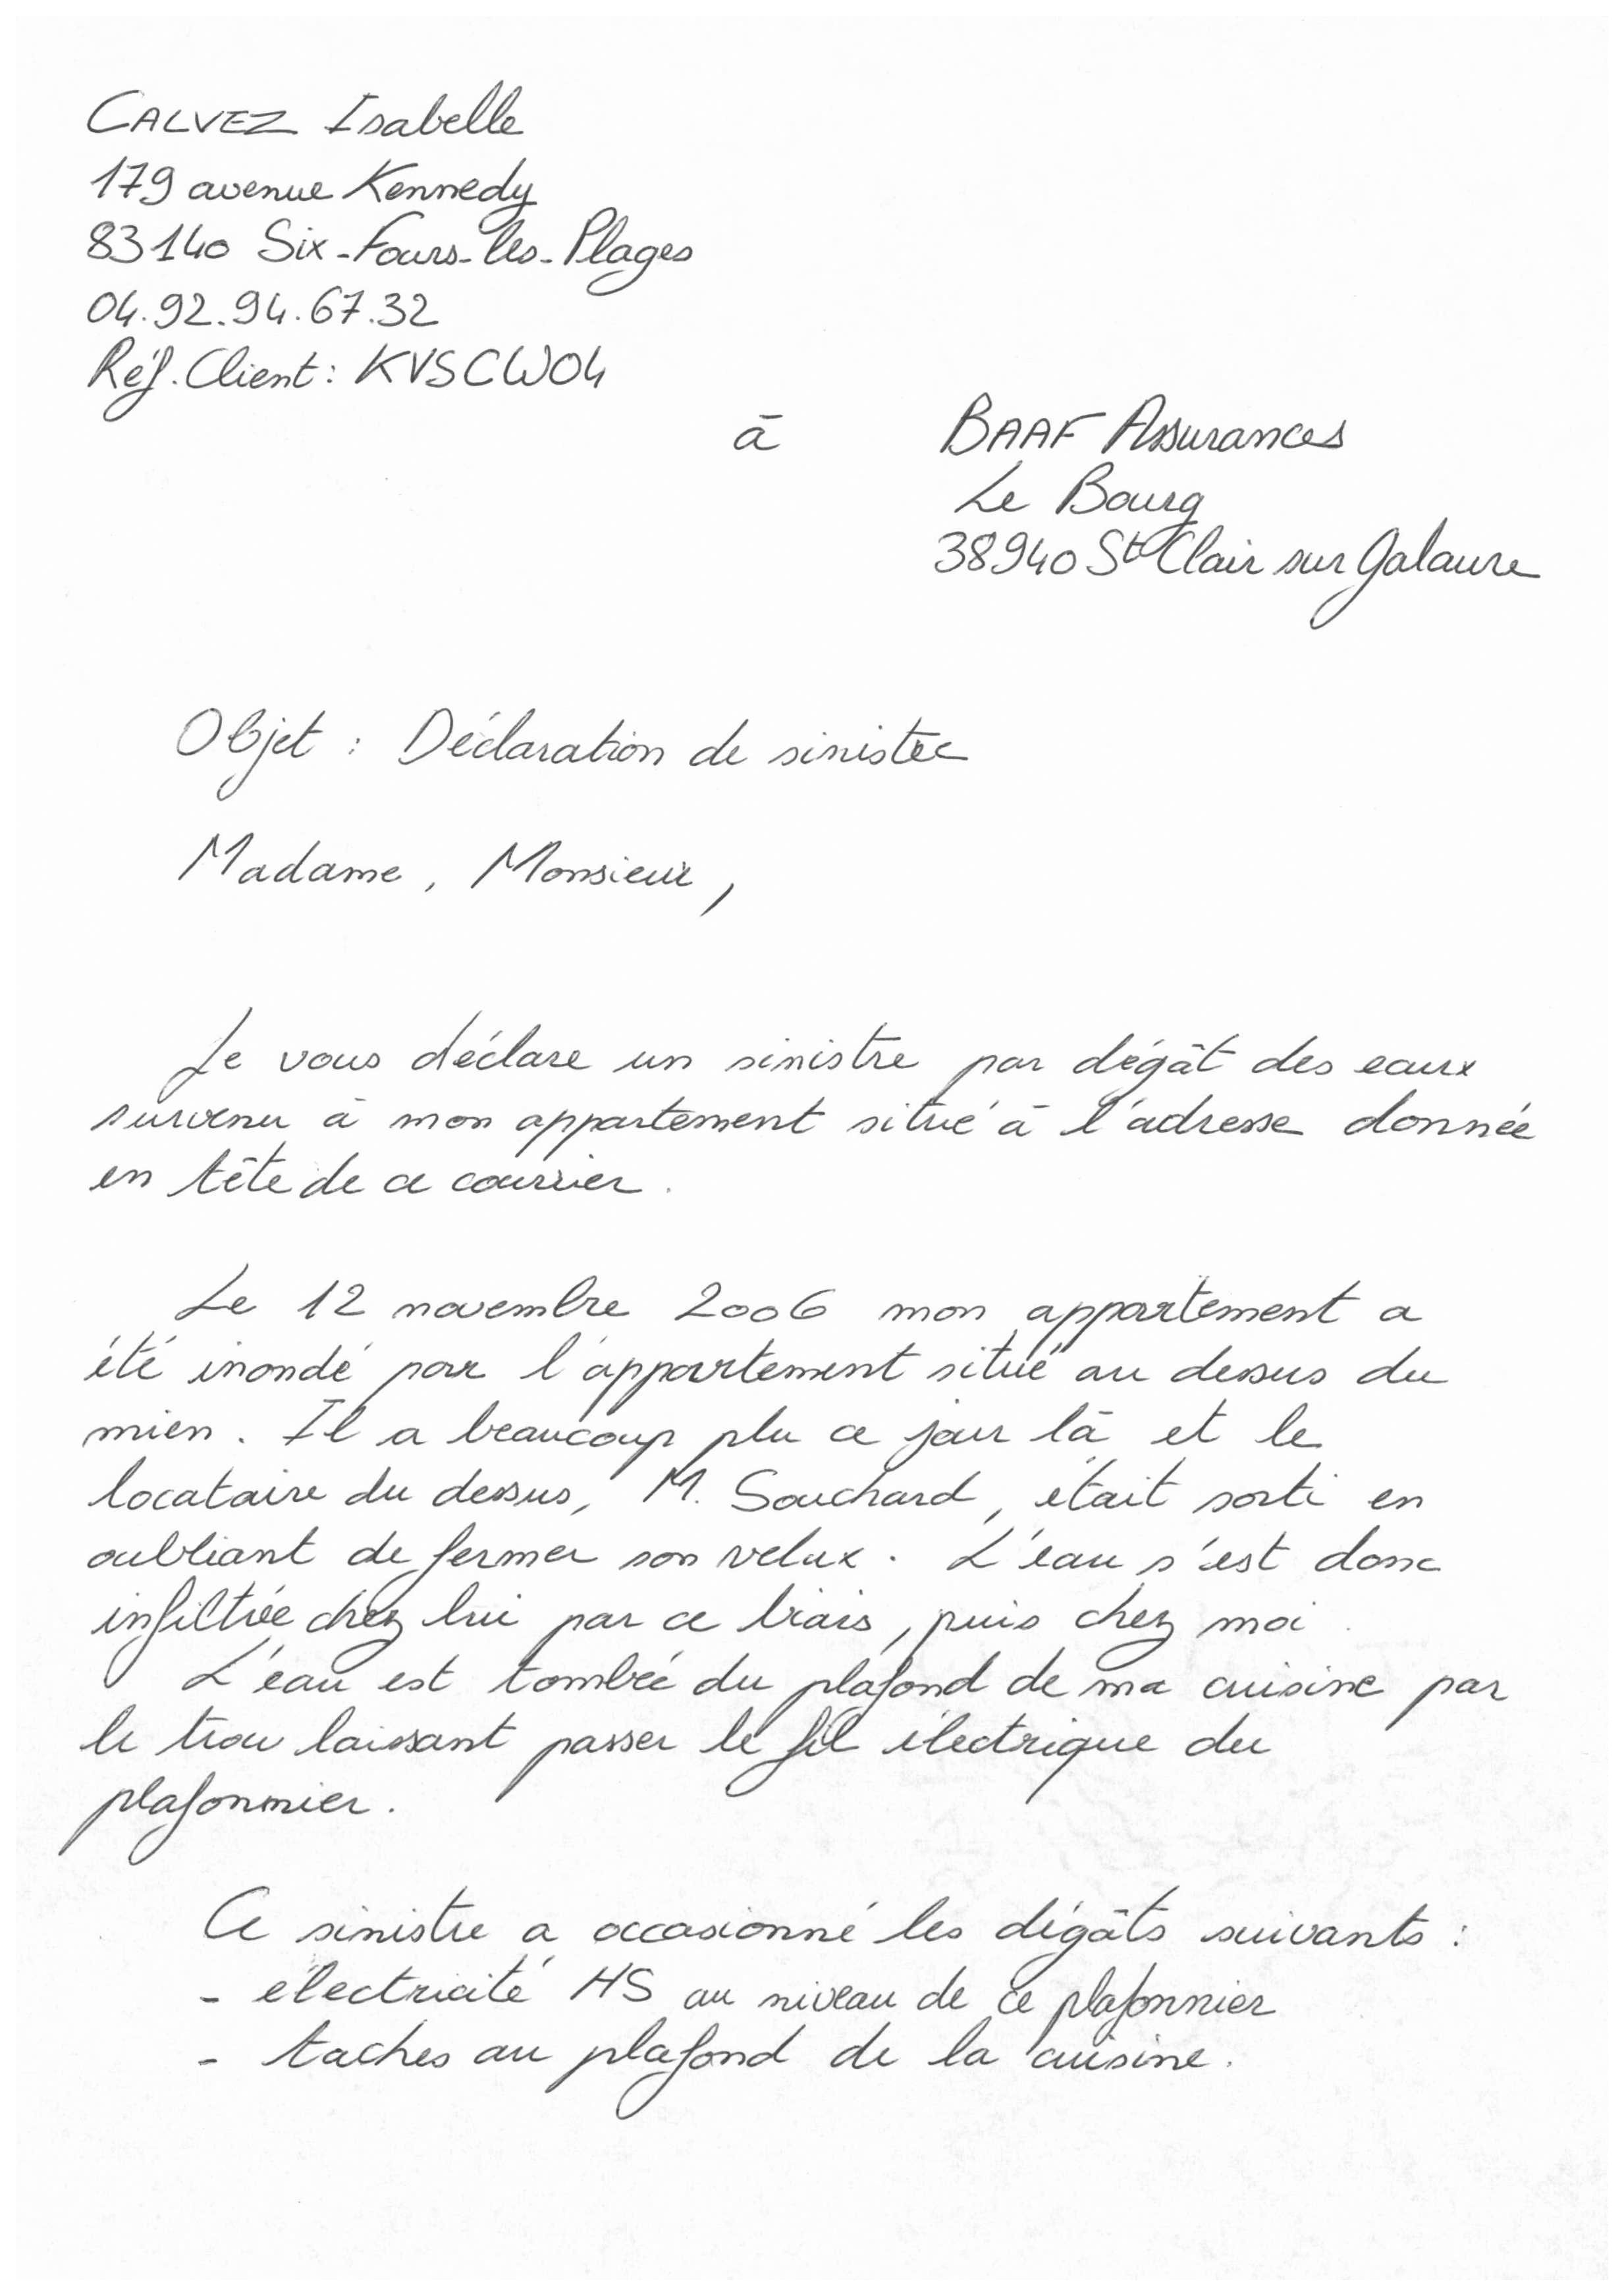 CALVEZ Isabelle
179 avenue Kennedy
83140 Six-Fours-les-Plages
04.92.94.67.32
Réf. Client : KVSCW04
à
BAAF Assurances
Le Bourg
38940 St Clair sur Galaure
Objet : Déclaration de sinistre
Madame, Monsieur,
Je vous déclare un sinistre par dégât des eaux
survenu à mon appartement situé à l'adresse donnée
en tête de ce courrier.
Le 12 novembre 2006 mon appartement a
été inondé par l'appartement situé au dessus du
mien. Il a beaucoup plu ce jour là et le
locataire du dessus, M. Souchard, était sorti en
oubliant de fermer son velux. L'eau s'est donc
infiltrée chez lui par ce biais, puis chez moi.
L'eau est tombée du plafond de ma cuisine par
le trou laissant passer le fil électrique du
plafonnier.
Ce sinistre a occasionné les dégâts suivants :
- électricité HS au niveau de ce plafonnier
- taches au plafond de la cuisine.